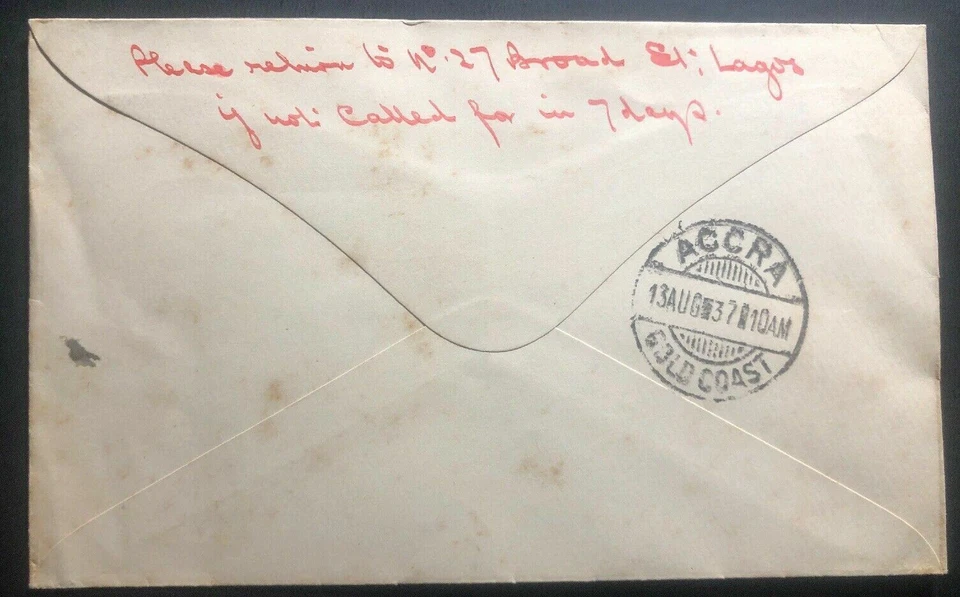 Please return to No. 27 Broad St; Lagos
if not Called for in 7 days.
ACCRA
13 AUG 37 10 AM
GOLD COAST